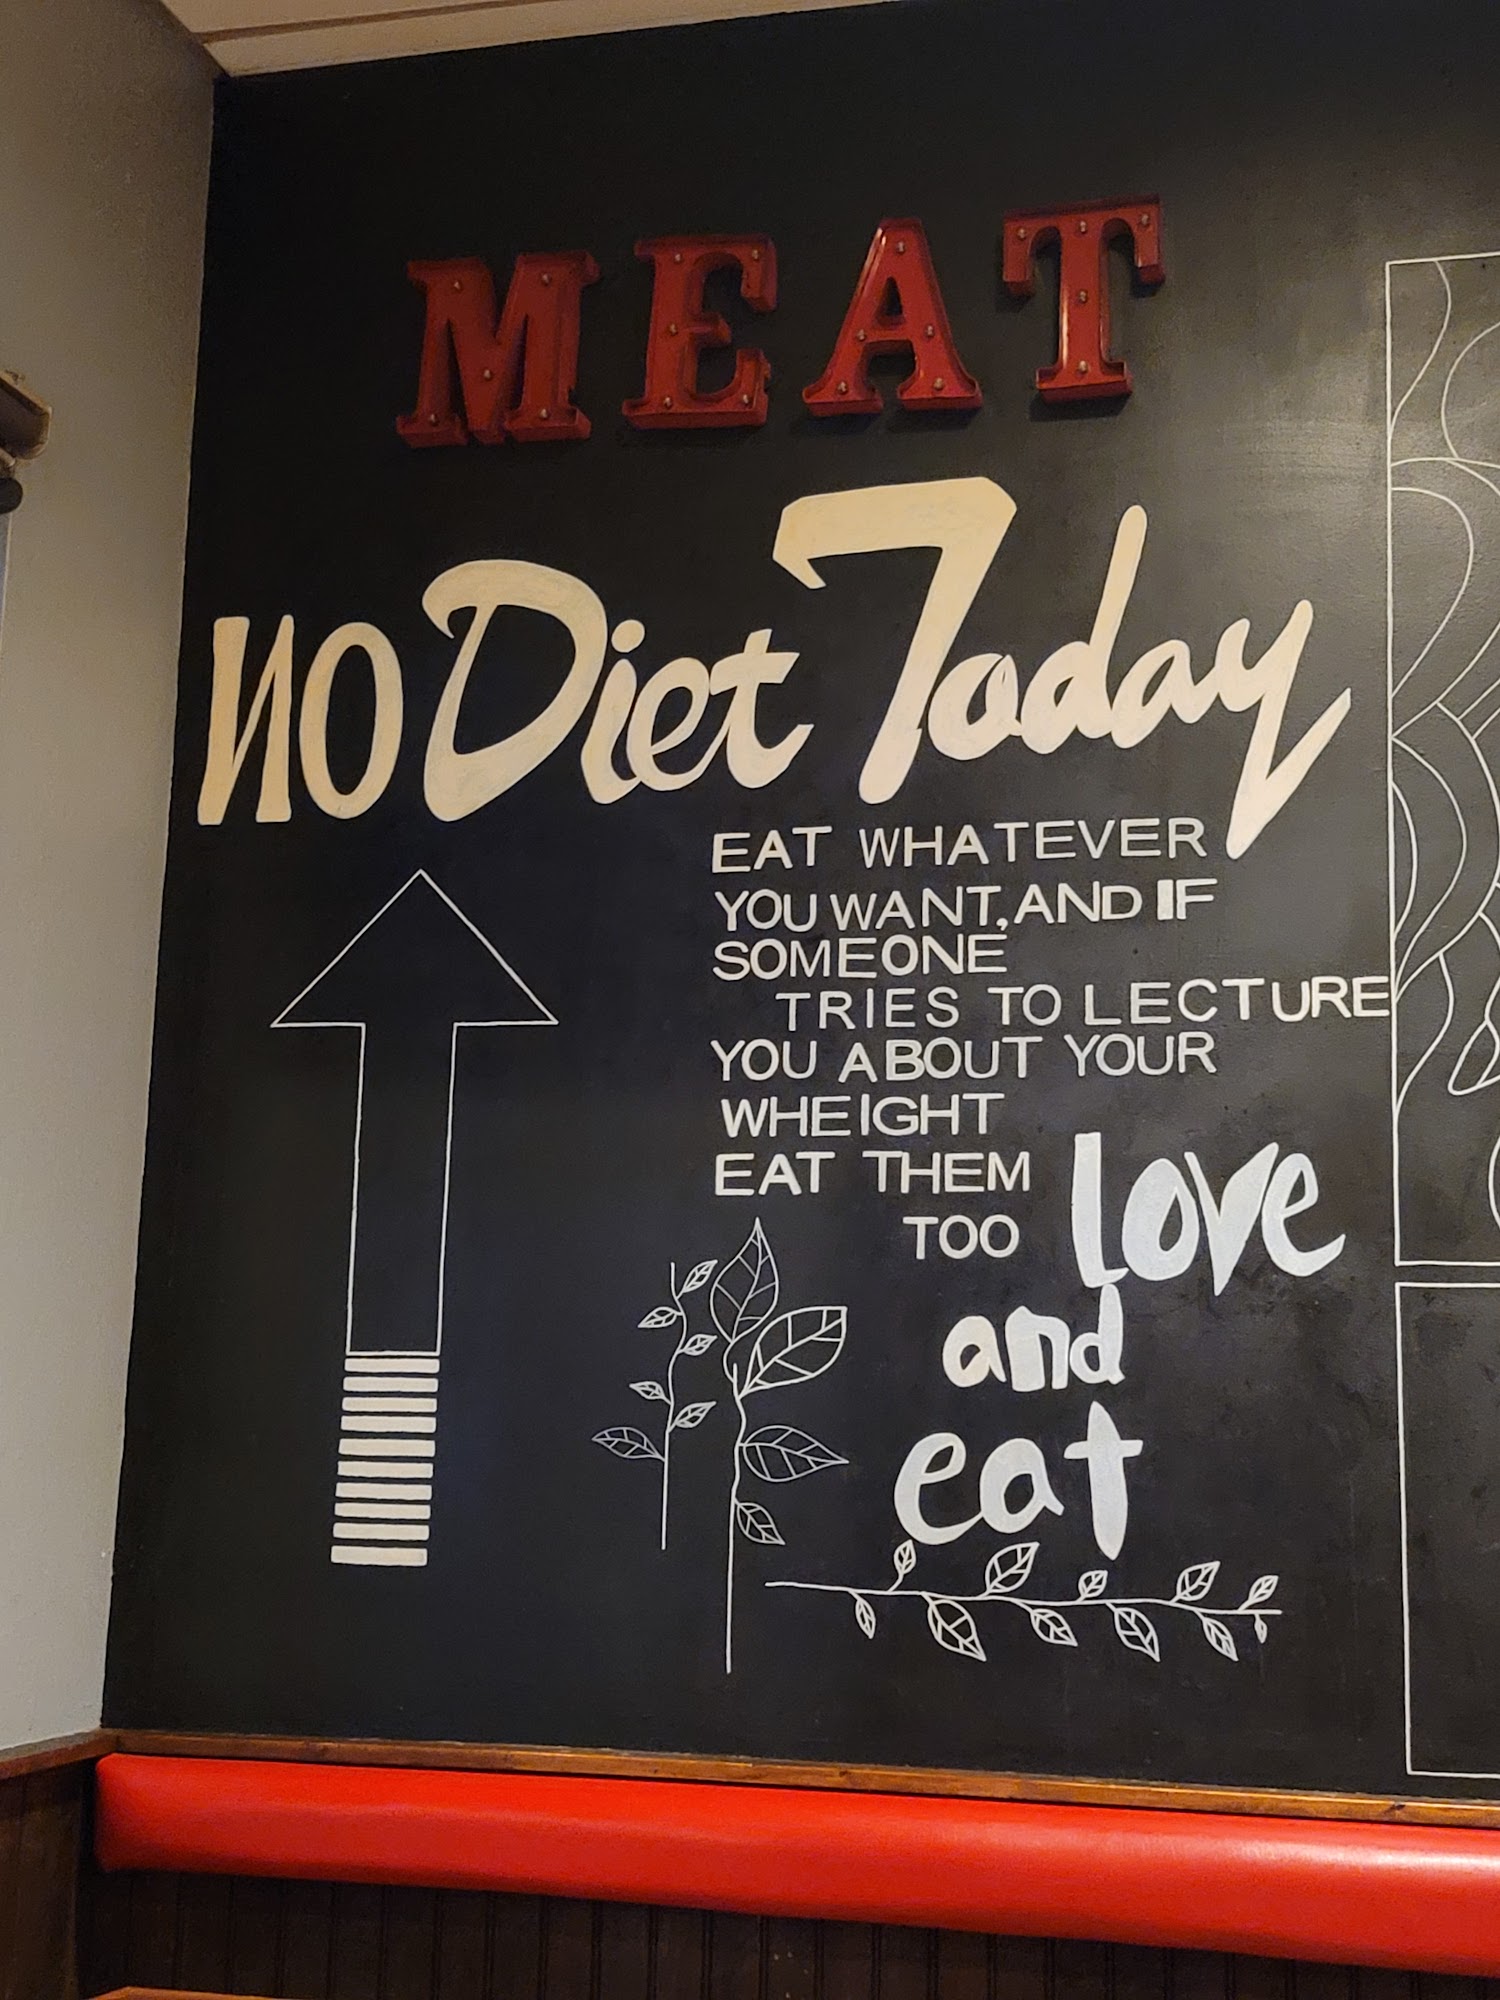 MEAT
NO Diet Today
EAT WHATEVER
YOU WANT, AND IF
SOMEONE
TRIES TO LECTURE
YOU ABOUT YOUR
WHEIGHT
EAT THEM
TOO
love
and
eat